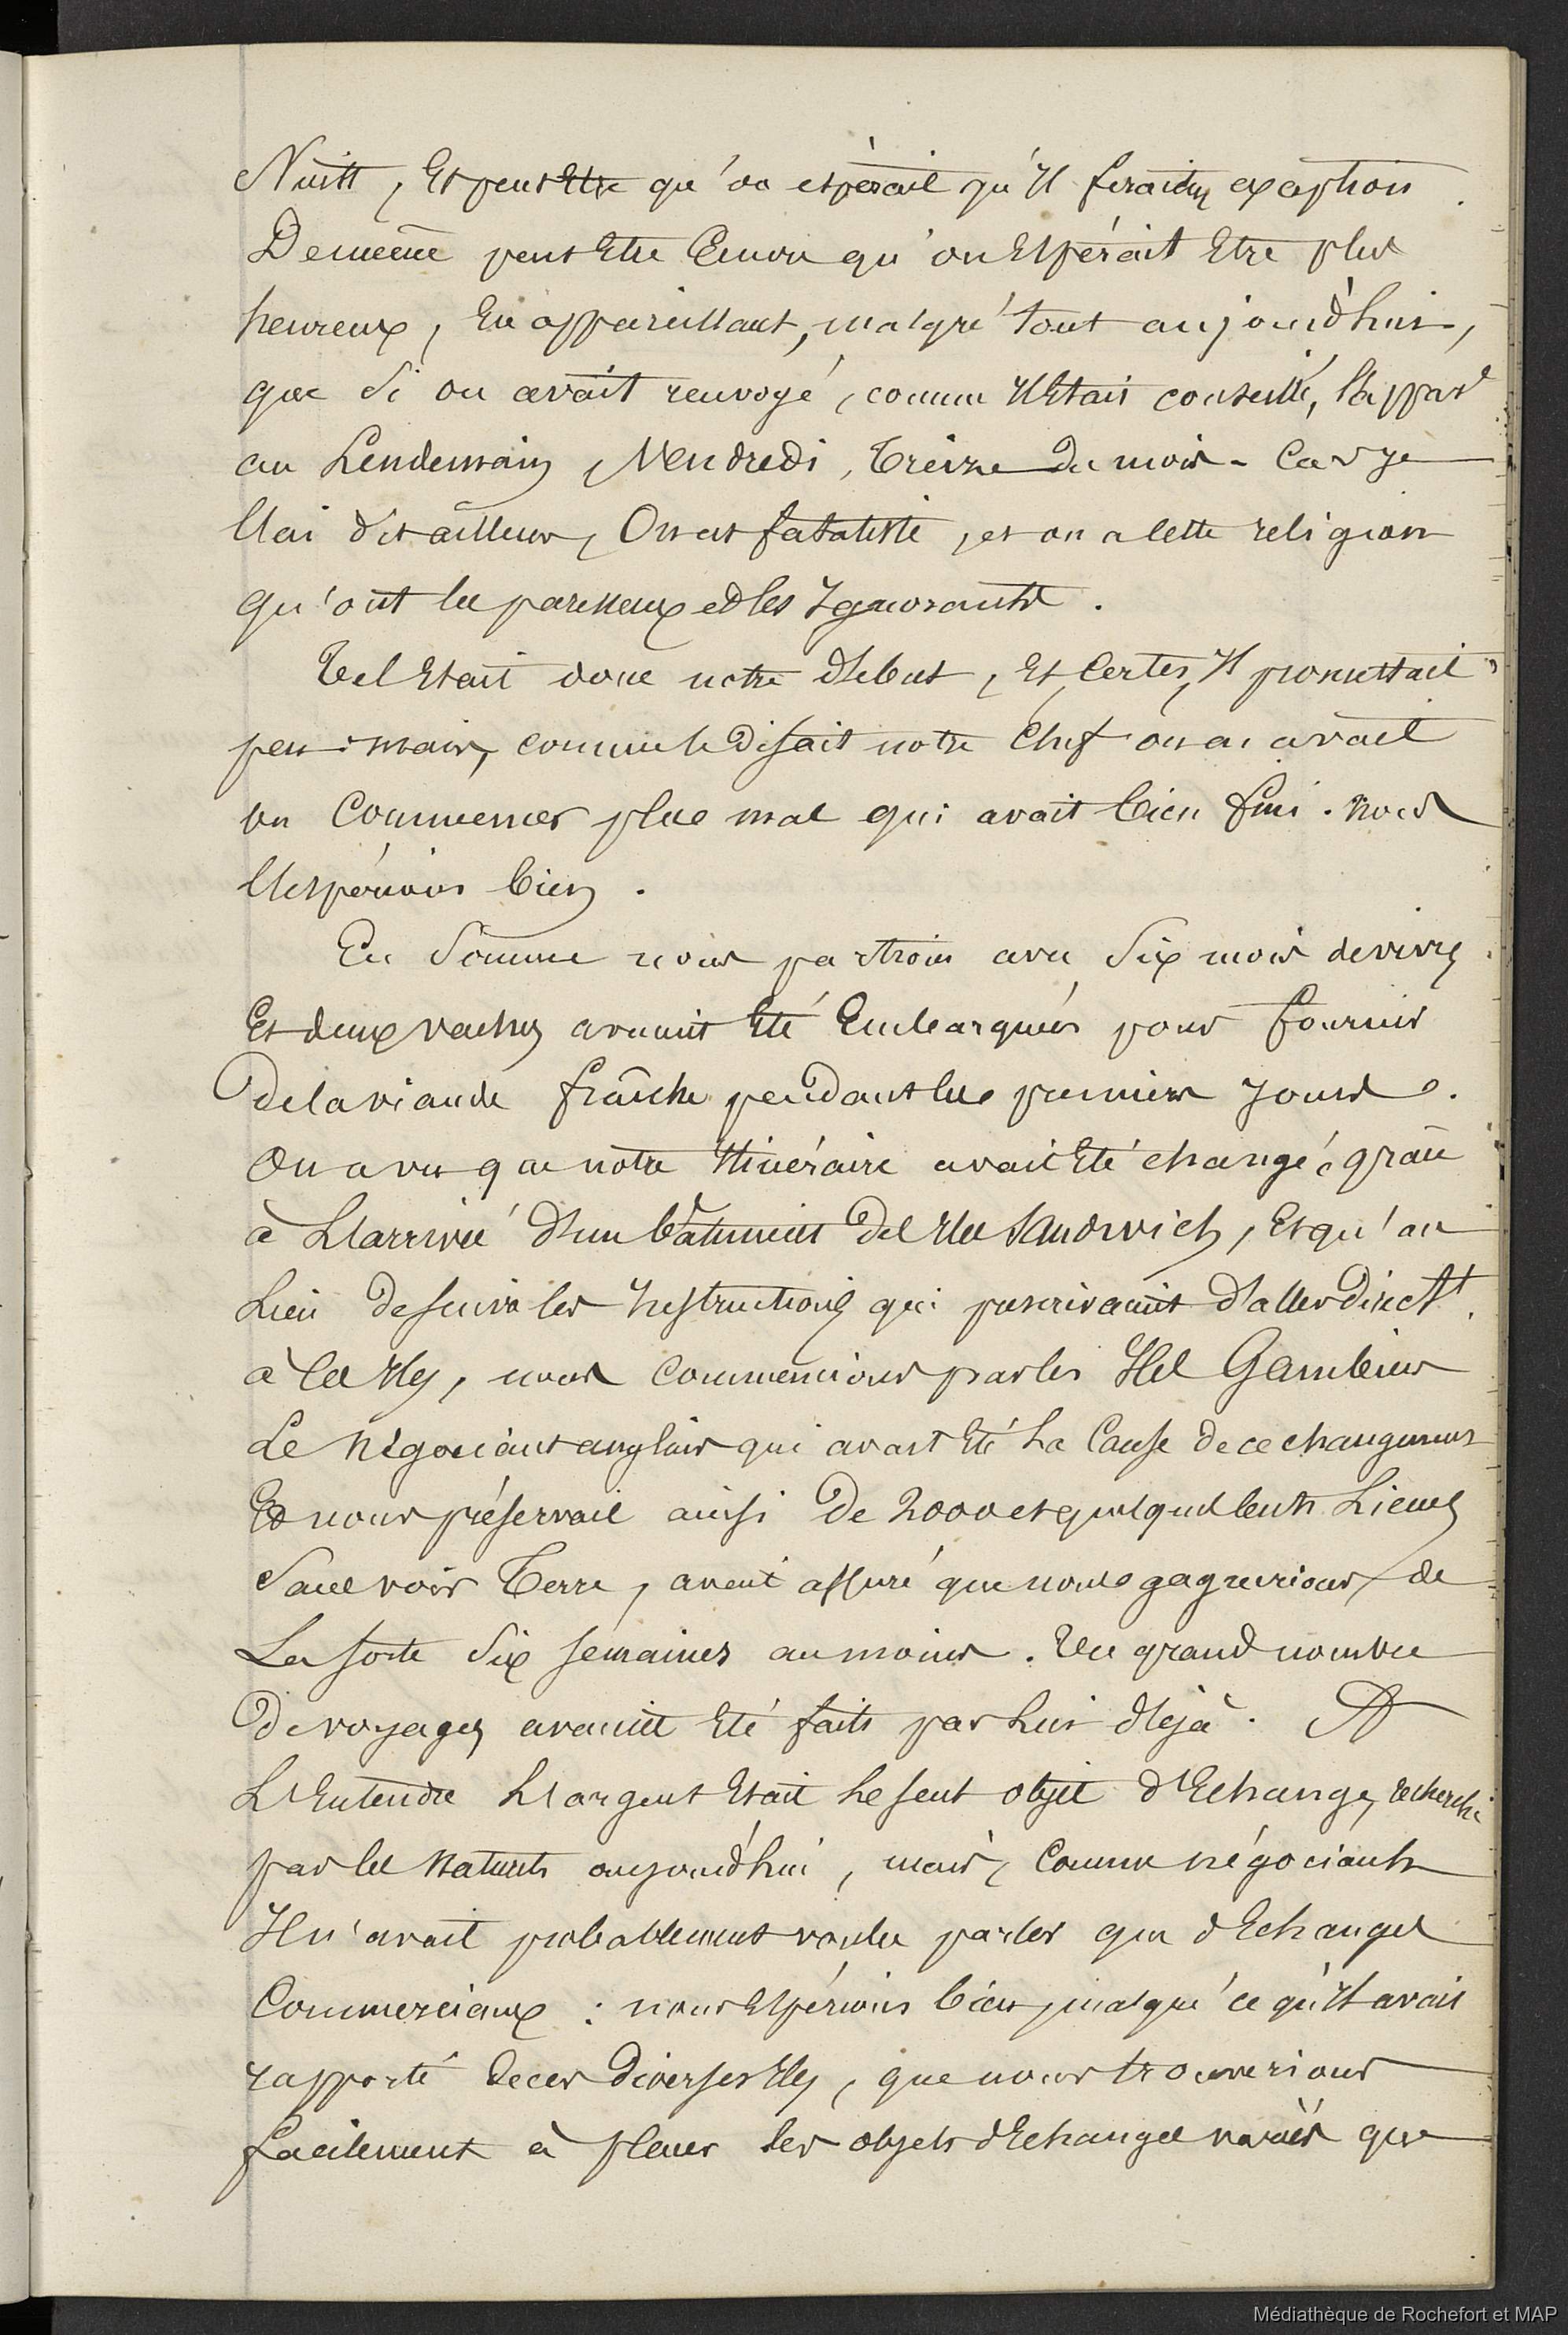 Nuits, Et peut Etre qu'on espérait qu'Il ferait exception.
De même peut Etre Encore qu'on Espérait Etre plus
heureux, En appareillant, malgré tout aujourd'hui,
que Si on avait renvoyé, comme Il Etait conseillé, l'appar^l
au Lendemain, Vendredi, Treize du mois - Car je
l'ai dit ailleurs, On est fataliste, et on a cette religion
qu'ont les paresseux et les Ignorants.
Tel Etait donc notre début, Et Certes, Il promettait
peu : mais, comme le Disait notre Chef on en avait
vu Commencer plus mal qui avait bien fini. Nous
l'espérions bien.
En Somme nous partions avec Six mois de vivres.
Et deux vaches avaient Eté Embarquées pour fournir
De la viande fraîche pendant les premiers Jours.
On a vu que notre Itinéraire avait Eté changé, grâce
à L'arrivée d'un bâtiment Des Iles Sandwich, Et qu'au
Lieu De suivre les Instructions qui prescrivaient d'aller Direct^t.
à ces Iles, nous Commencions par les Iles Gambier
Le Négociant anglais qui avait Eté La Cause de ce changement
Et nous préservait ainsi De 2000 et quelques Cents Lieues
Sans voir Terre, avait assuré que nous gagnerions, de
La sorte Six semaines au moins. Un grand nombre
De voyages avaient Eté faits par Lui déjà. A
L'Entendre L'argent Etait Le seul objet d'Echange, recherché
par les Naturels aujourd'hui, mais, Comme négociant
Il n'avait probablement voulu parler que d'Echanges
Commerciaux : nous Espérions bien, malgré ce qu'Il avait
rapporté De ces Diverses Iles, que nous trouverions
facilement à placer les objets d'Echanges variés que
Médiathèque de Rochefort et MAP